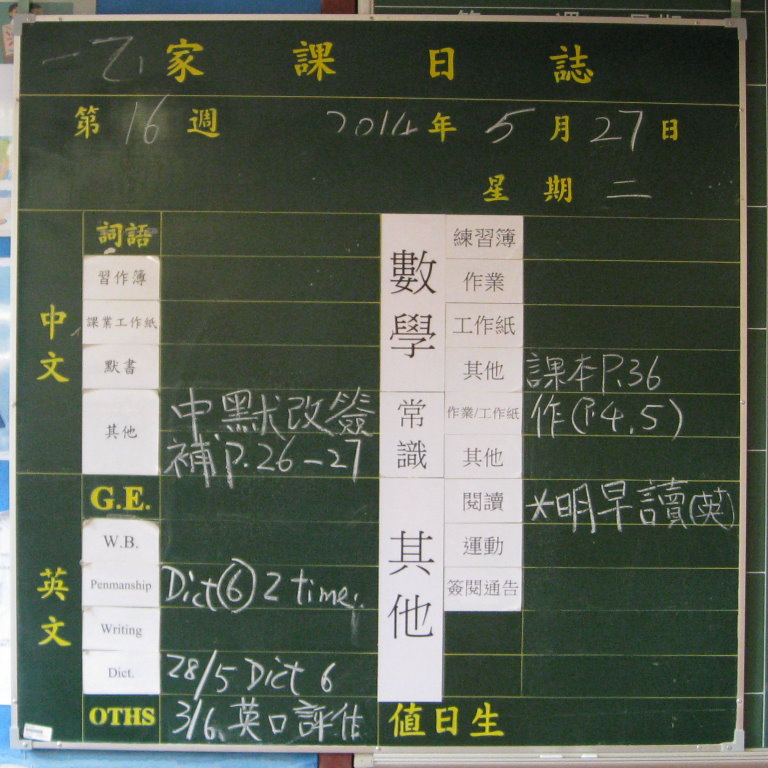 一乙 家課日誌
第16週 2014年5月27日
星期二
中文
詞語
習作簿
課業工作紙
默書
其他 中默改簽
補P.26-27
英文
G.E.
W.B.
Penmanship Dict⑥ 2 time.
Writing
Dict. 28/5 Dict 6
OTHS 3/6 英口評估
數學
練習簿
作業
工作紙
其他 課本P.36
常識
作業/工作紙 作(P.4.5)
其他
其他
閱讀 *明早讀(英)
運動
簽閱通告
值日生